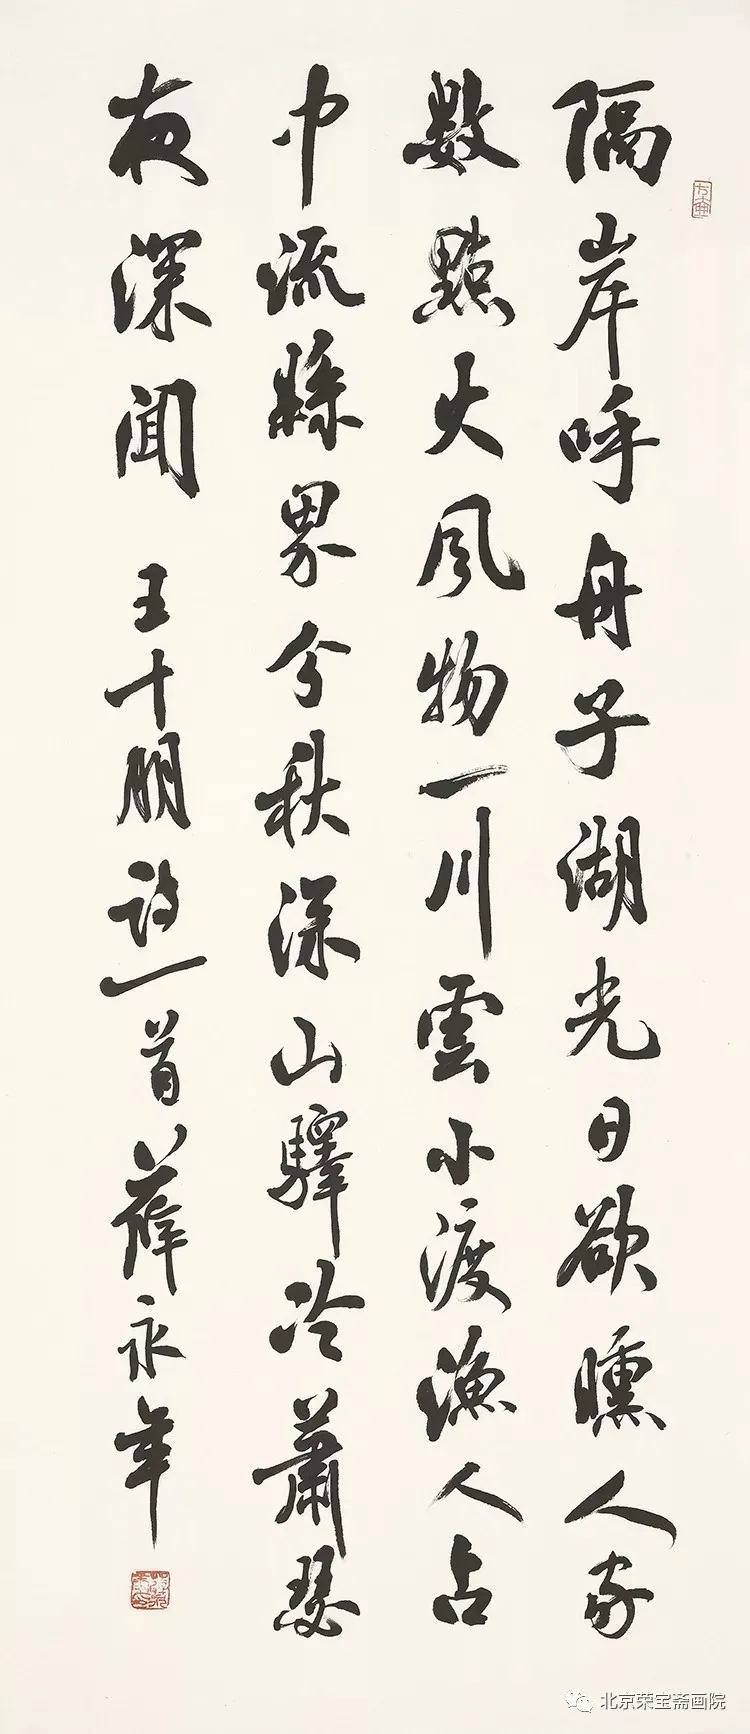 隔岸呼舟子湖光日欲曛人家
數點火風物一川雲小渡漁人占
中流縣界分秋深山驛冷蕭瑟
夜深聞
王十朋詩一首薛永年
北京荣宝斋画院